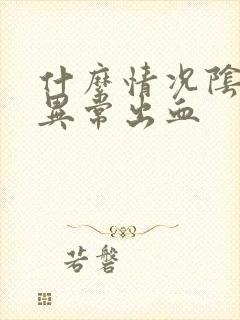 什麼情況陰
異常出血
若磐